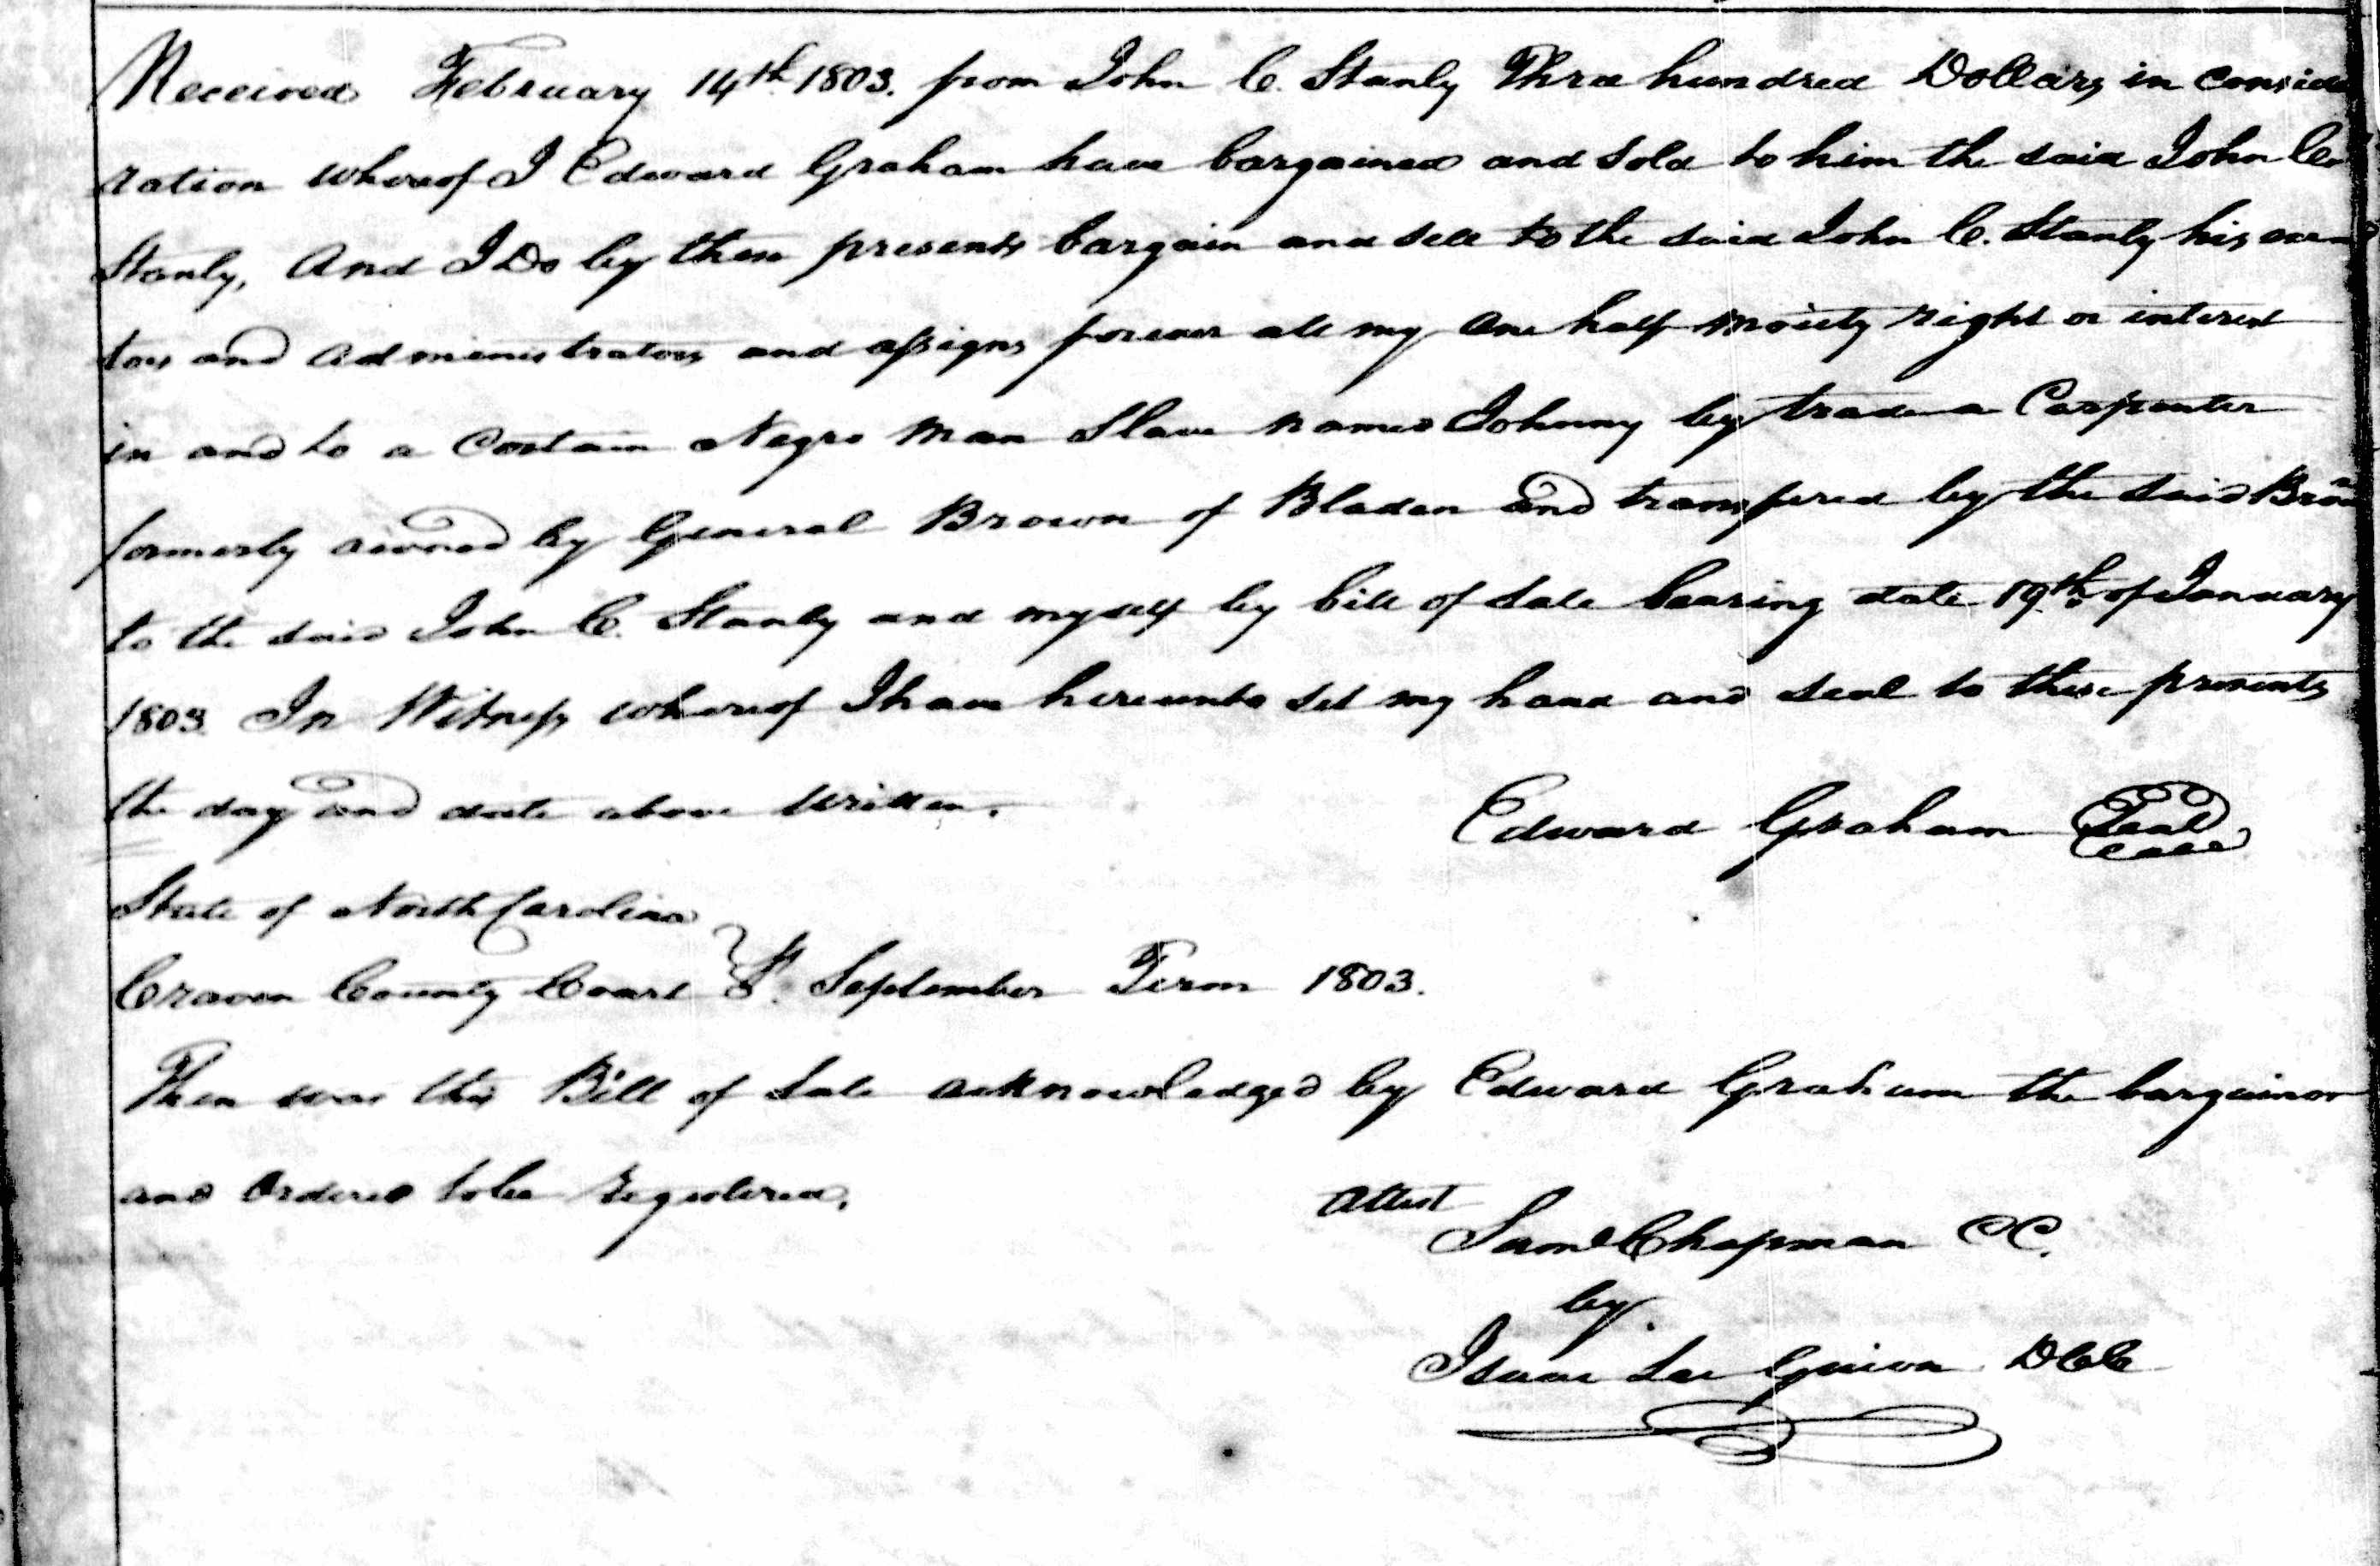 Received February 14th 1803. from John C. Stanly Three hundred Dollars in Conside
ration whereof I Edward Graham have bargained and Sold to him the said John C.
Stanly, And I Do by these presents bargain and sell to the said John C. Stanly his
tors and Administrators and assigns forever all my one half moiety right or interest
in and to a Certain Negro Man Slave named Johnny by trade a Carpenter
formerly owned by General Brown of Bladen and transfered by the said Brown
to the said John C. Stanly and myself by bill of sale bearing date 19th of January
1803. In Witness whereof I have hereunto set my hand and seal to these presents
the day and date above Written.
Edward Graham Seal
State of North Carolina
Craven County Court September Term 1803.
Then was this Bill of Sale acknowledged by Edward Graham the bargainor
and Ordered to be Registered.
Attest
Saml Chapman CC.
by
Isaac Lee Guion DCC